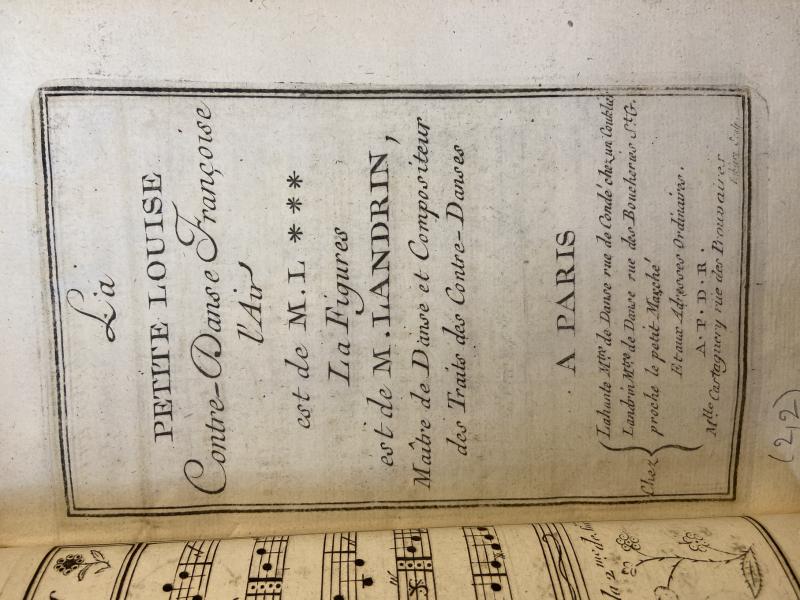 La
PETITE LOUISE
Contre-Danse Françoise
l'Air
est de M. L ***
La Figures
est de M. LANDRIN,
Maître de Danse et Compositeur
des Traits des Contre-Danses
A PARIS
Chez
Lahante Mtre de Danse rue de Condé chez un Coutelier
Landrin Mtre de Danse rue des Boucheries St. G.
proche le petit Marché
Et aux Adresses Ordinaires.
A. P. D. R.
Mlle Cartaguery rue des Prouvaires
(22)
la 2